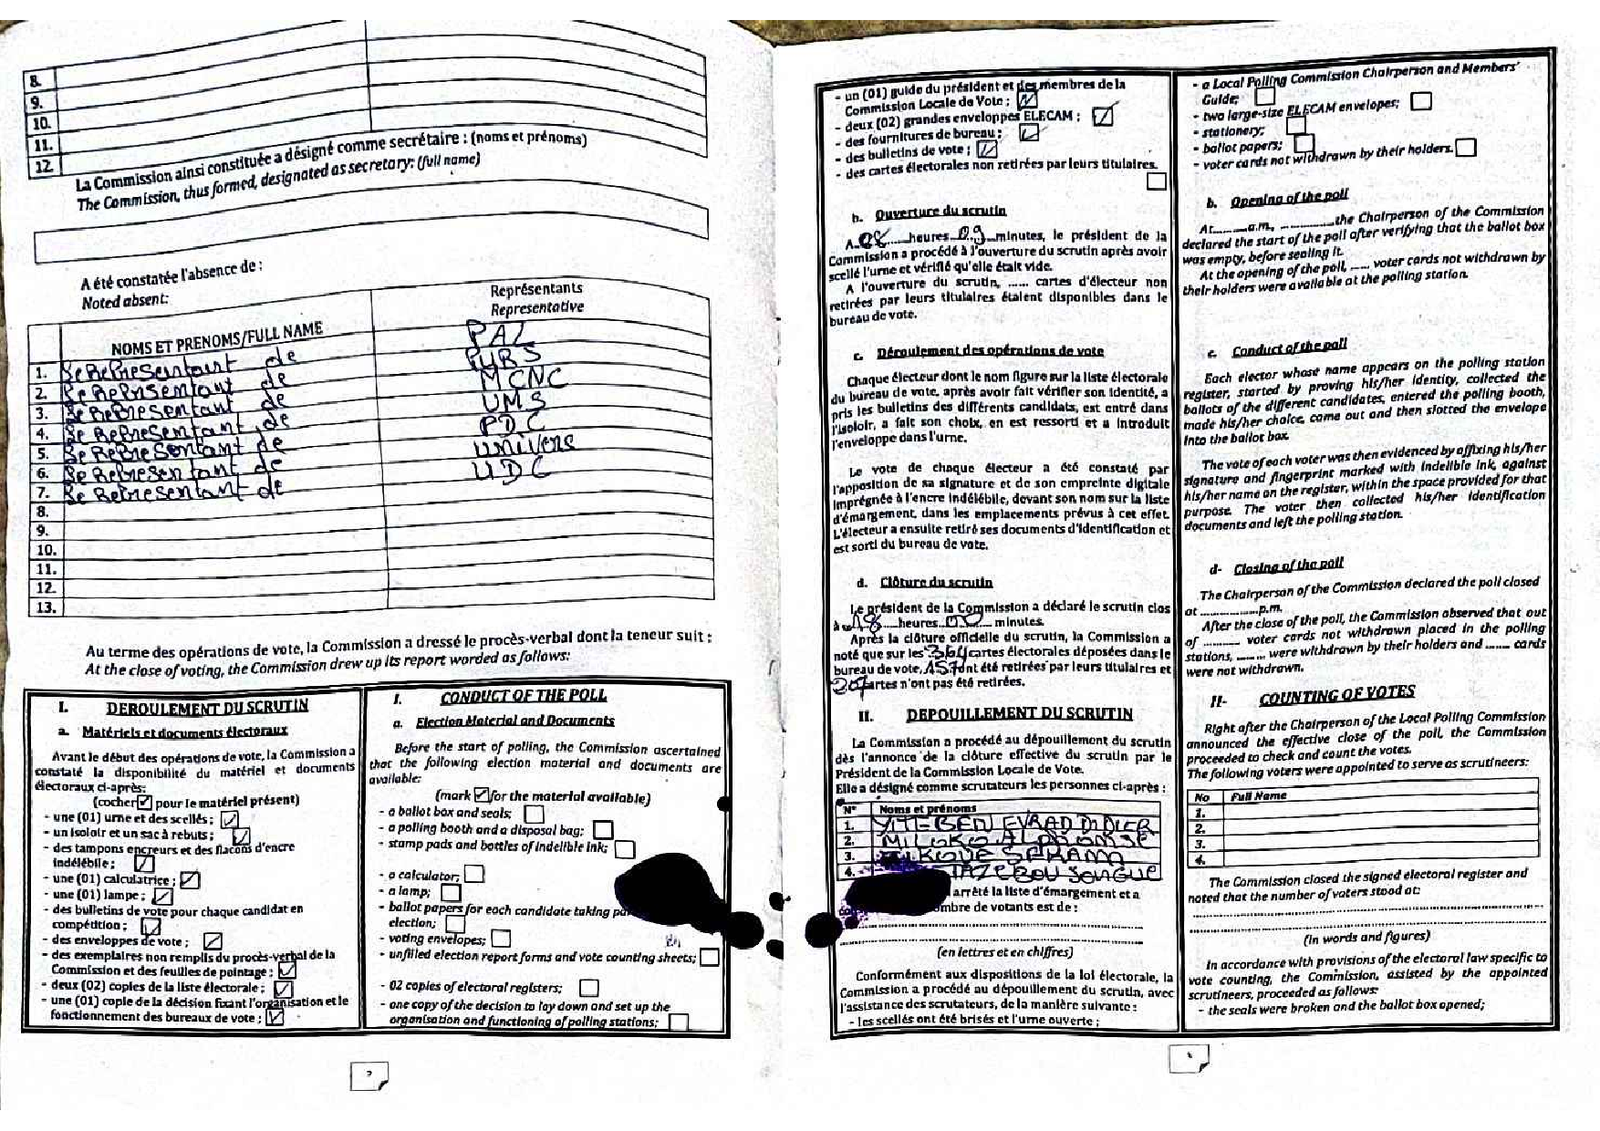 8.
9.
10.
11.
12.
La Commission ainsi constituée a désigné comme secrétaire : (noms et prénoms)
The Commission, thus formed, designated as secretary: (full name)
A été constatée l'absence de :
Noted absent:
NOMS ET PRENOMS/FULL NAME
Représentants
Representative
1. Le Representant de PAL
2. Le Representant de PURS
3. Le Representant de MCNC
4. Le Representant de UMS
5. Le Representant de PDC
6. Le Representant de Univers
7. Le Representant de UDC
8.
9.
10.
11.
12.
13.
Au terme des opérations de vote, la Commission a dressé le procès-verbal dont la teneur suit :
At the close of voting, the Commission drew up its report worded as follows:
I. DEROULEMENT DU SCRUTIN
a. Matériels et documents électoraux
Avant le début des opérations de vote, la Commission a
constaté la disponibilité du matériel et documents
électoraux ci-après:
(cocher pour le matériel présent)
- une (01) urne et des scellés ;
- un isoloir et un sac à rebuts ;
- des tampons encreurs et des flacons d'encre
indélébile ;
- une (01) calculatrice ;
- une (01) lampe ;
- des bulletins de vote pour chaque candidat en
compétition ;
- des enveloppes de vote ;
- des exemplaires non remplis du procès-verbal de la
Commission et des feuilles de pointage ;
- deux (02) copies de la liste électorale ;
- une (01) copie de la décision fixant l'organisation et le
fonctionnement des bureaux de vote ;
I. CONDUCT OF THE POLL
a. Election Material and Documents
Before the start of polling, the Commission ascertained
that the following election material and documents are
available:
(mark for the material available)
- a ballot box and seals;
- a polling booth and a disposal bag;
- stamp pads and bottles of indelible ink;
- a calculator;
- a lamp;
- ballot papers for each candidate taking
election;
- voting envelopes;
- unfilled election report forms and vote counting sheets;
- 02 copies of electoral registers;
- one copy of the decision to lay down and set up the
organisation and functioning of polling stations;
- un (01) guide du président et des membres de la
Commission Locale de Vote ;
- deux (02) grandes enveloppes ELECAM ;
- des fournitures de bureau ;
- des bulletins de vote ;
- des cartes électorales non retirées par leurs titulaires.
b. Ouverture du scrutin
A 08 heures 09 minutes, le président de la
Commission a procédé à l'ouverture du scrutin après avoir
scellé l'urne et vérifié qu'elle était vide.
A l'ouverture du scrutin, ...... cartes d'électeur non
retirées par leurs titulaires étaient disponibles dans le
bureau de vote.
c. Déroulement des opérations de vote
Chaque électeur dont le nom figure sur la liste électorale
du bureau de vote, après avoir fait vérifier son identité, a
pris les bulletins des différents candidats, est entré dans
l'isoloir, a fait son choix, en est ressorti et a introduit
l'enveloppe dans l'urne.
Le vote de chaque électeur a été constaté par
l'apposition de sa signature et de son empreinte digitale
imprégnée à l'encre indélébile, devant son nom sur la liste
d'émargement, dans les emplacements prévus à cet effet.
L'électeur a ensuite retiré ses documents d'identification et
est sorti du bureau de vote.
d. Clôture du scrutin
Le président de la Commission a déclaré le scrutin clos
à 18 heures 00 minutes.
Après la clôture officielle du scrutin, la Commission a
noté que sur les 364 cartes électorales déposées dans le
bureau de vote, 157 ont été retirées par leurs titulaires et
207 cartes n'ont pas été retirées.
II. DEPOUILLEMENT DU SCRUTIN
La Commission a procédé au dépouillement du scrutin
dès l'annonce de la clôture effective du scrutin par le
Président de la Commission Locale de Vote.
Elle a désigné comme scrutateurs les personnes ci-après :
N° Noms et prénoms
1. YITE-BEN EVRAD DIDIER
2. MILOKO ALPHONSE
3.
4.
arrêté la liste d'émargement et a
nombre de votants est de :
(en lettres et en chiffres)
Conformément aux dispositions de la loi électorale, la
Commission a procédé au dépouillement du scrutin, avec
l'assistance des scrutateurs, de la manière suivante :
- les scellés ont été brisés et l'urne ouverte ;
- a Local Polling Commission Chairperson and Members'
Guide;
- two large-size ELECAM envelopes;
- stationery;
- ballot papers;
- voter cards not withdrawn by their holders.
b. Opening of the poll
At.........a.m, ............the Chairperson of the Commission
declared the start of the poll after verifying that the ballot box
was empty, before sealing it.
At the opening of the poll, ..... voter cards not withdrawn by
their holders were available at the polling station.
c. Conduct of the poll
Each elector whose name appears on the polling station
register, started by proving his/her identity, collected the
ballots of the different candidates, entered the polling booth,
made his/her choice, came out and then slotted the envelope
into the ballot box.
The vote of each voter was then evidenced by affixing his/her
signature and fingerprint marked with indelible ink, against
his/her name on the register, within the space provided for that
purpose. The voter then collected his/her identification
documents and left the polling station.
d- Closing of the poll
The Chairperson of the Commission declared the poll closed
at ................p.m.
After the close of the poll, the Commission observed that out
of ......... voter cards not withdrawn placed in the polling
stations, ........ were withdrawn by their holders and ....... cards
were not withdrawn.
II- COUNTING OF VOTES
Right after the Chairperson of the Local Polling Commission
announced the effective close of the poll, the Commission
proceeded to check and count the votes.
The following voters were appointed to serve as scrutineers:
No Full Name
1.
2.
3.
4.
The Commission closed the signed electoral register and
noted that the number of voters stood at:
(In words and figures)
In accordance with provisions of the electoral law specific to
vote counting, the Commission, assisted by the appointed
scrutineers, proceeded as follows:
- the seals were broken and the ballot box opened;